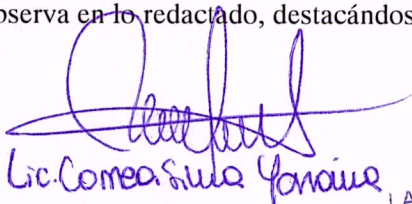 bserva en lo redactado, destacándos
Lic. Correa Silvia Yanaina
LA